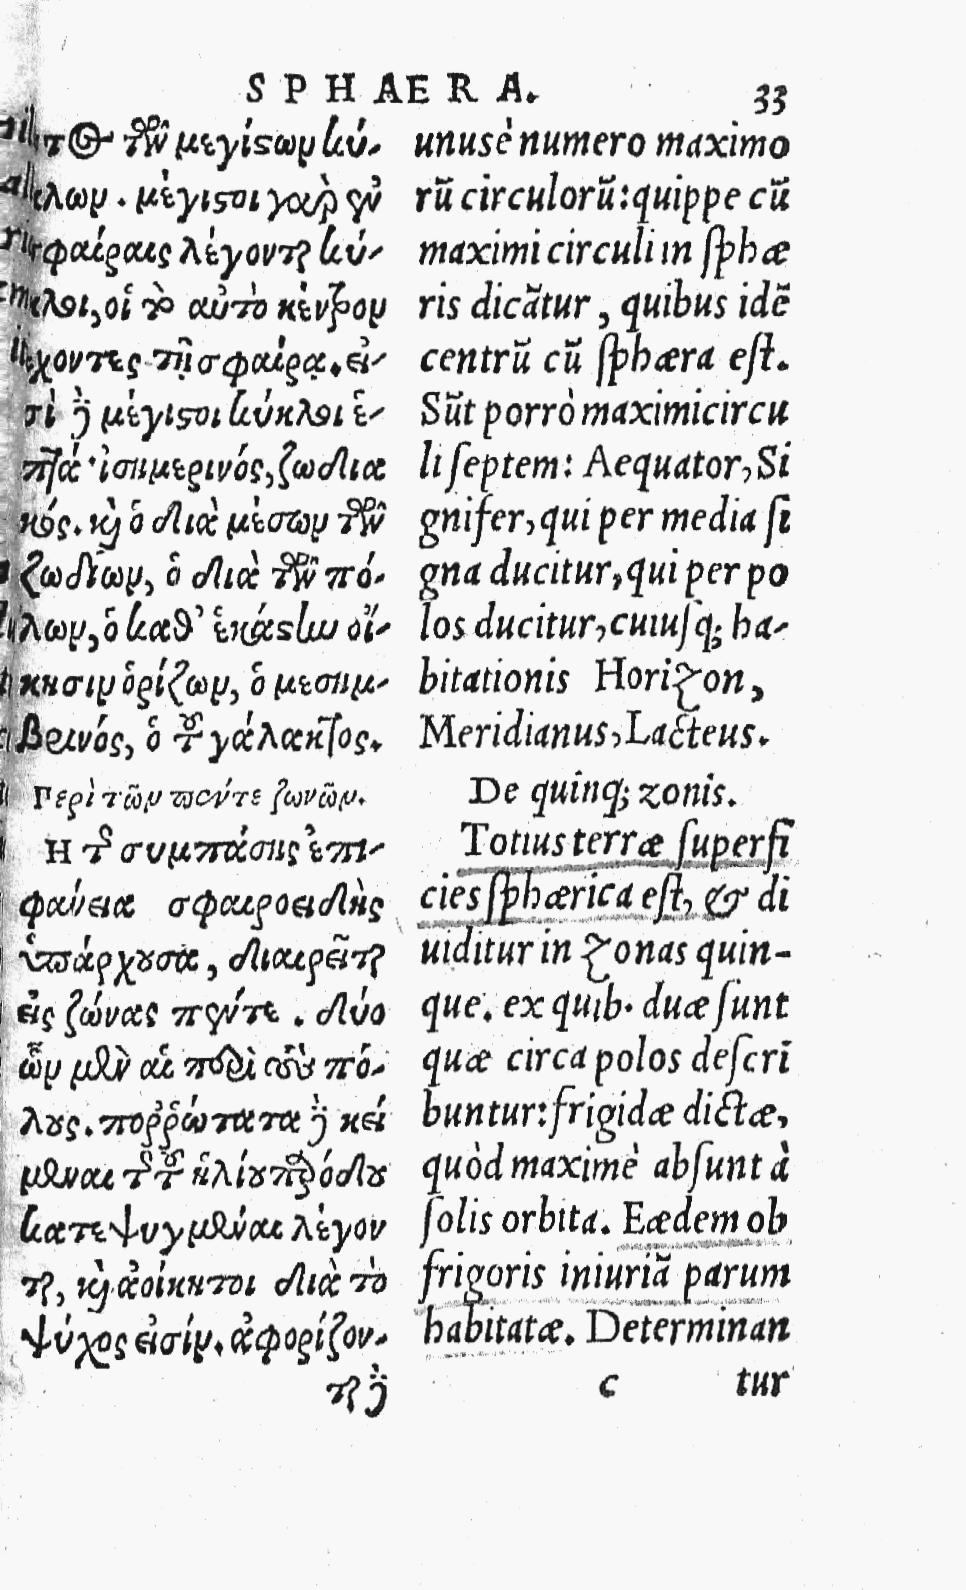 SPHAERA.
33
τος τῶν μεγίστων κύ-
κλων. μέγιστοι γὰρ ἐν
σφαίραις λέγονται κύ-
κλοι, οἱ τὸ αὐτὸ κέντρον
ἔχοντες τῇ σφαίρᾳ. εἰ-
σὶ δὲ μέγιστοι κύκλοι ἑ-
πτά· ἰσημερινός, ζωδια
κός. καὶ ὁ διὰ μέσων τῶν
ζωδίων, ὁ διὰ τῶν πό-
λων, ὁ καθ' ἑκάστην οἴ-
κησιν ὁρίζων, ὁ μεσημ-
βρινός, ὁ τοῦ γάλακτος.
Περὶ τῶν πέντε ζωνῶν.
Η τῆς συμπάσης ἐπι-
φάνεια σφαιροειδὴς
ὑπάρχουσα, διαιρεῖται
εἰς ζώνας πέντε. δύο
ὧν μὲν αἱ περὶ τοὺς πό-
λους. πορῤῥώτατα δὲ κεί
μεναι τῆς τοῦ ἡλίου παρόδου
κατεψυγμέναι λέγον
ται, καὶ ἀοίκητοι διὰ τὸ
ψύχος εἰσίν. ἀφορίζον-
ται δὲ
unus è numero maximo
rũ circulorũ: quippe cũ
maximi circuli in sphæ
ris dicãtur, quibus idẽ
centrũ cũ sphæra est.
Sũt porrò maximi circu
li septem: Aequator, Si
gnifer, qui per media si
gna ducitur, qui per po
los ducitur, cuiusq; ha-
bitationis Horizon,
Meridianus, Lacteus.
De quinq; zonis.
Totius terræ superfi
cies sphærica est, & di
uiditur in zonas quin-
que. ex quib. duæ sunt
quæ circa polos descrĩ
buntur: frigidæ dictæ,
quòd maximè absunt à
solis orbita. Eædem ob
frigoris iniuriã parum
habitatæ. Determinan
c tur